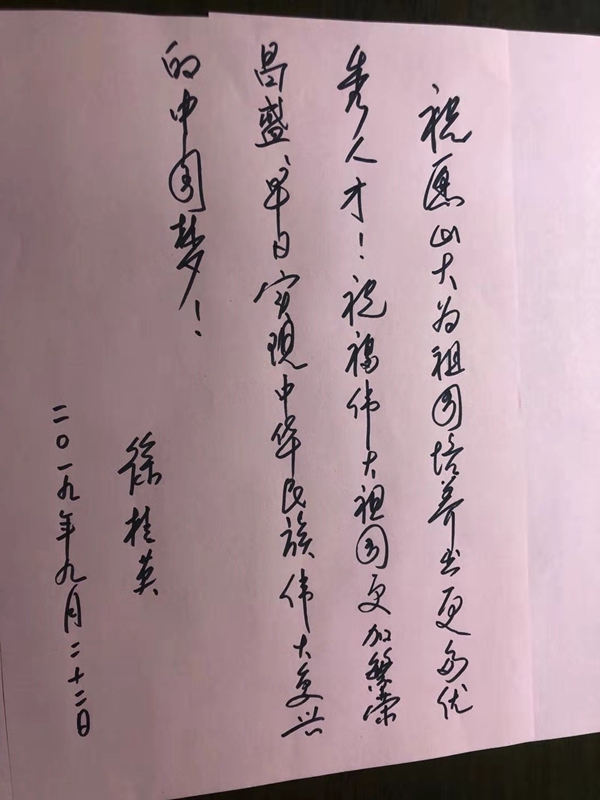 祝愿山大为祖国培养出更多优
秀人才！祝福伟大祖国更加繁荣
昌盛、早日实现中华民族伟大复兴
的中国梦！
徐桂英
二〇一九年九月二十二日